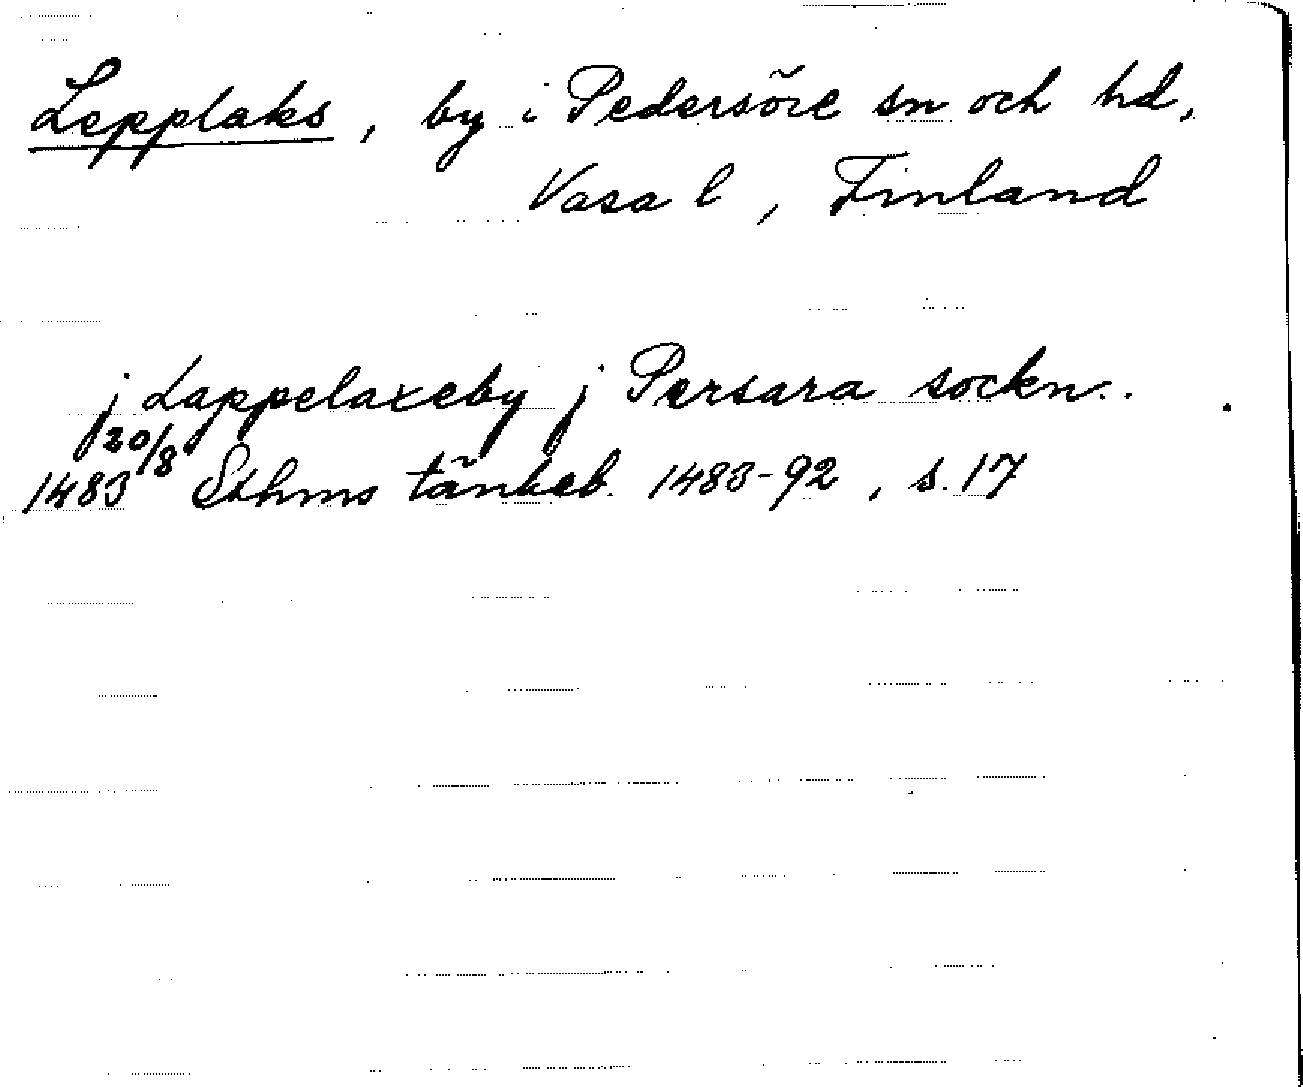 Lepplaks, by i Pedersöre sn och hd,
Vasa l, Finland
j Lappelaxeby j Persara sockn..
1483 20/8 Sthms tänkeb. 1483-92, s. 17